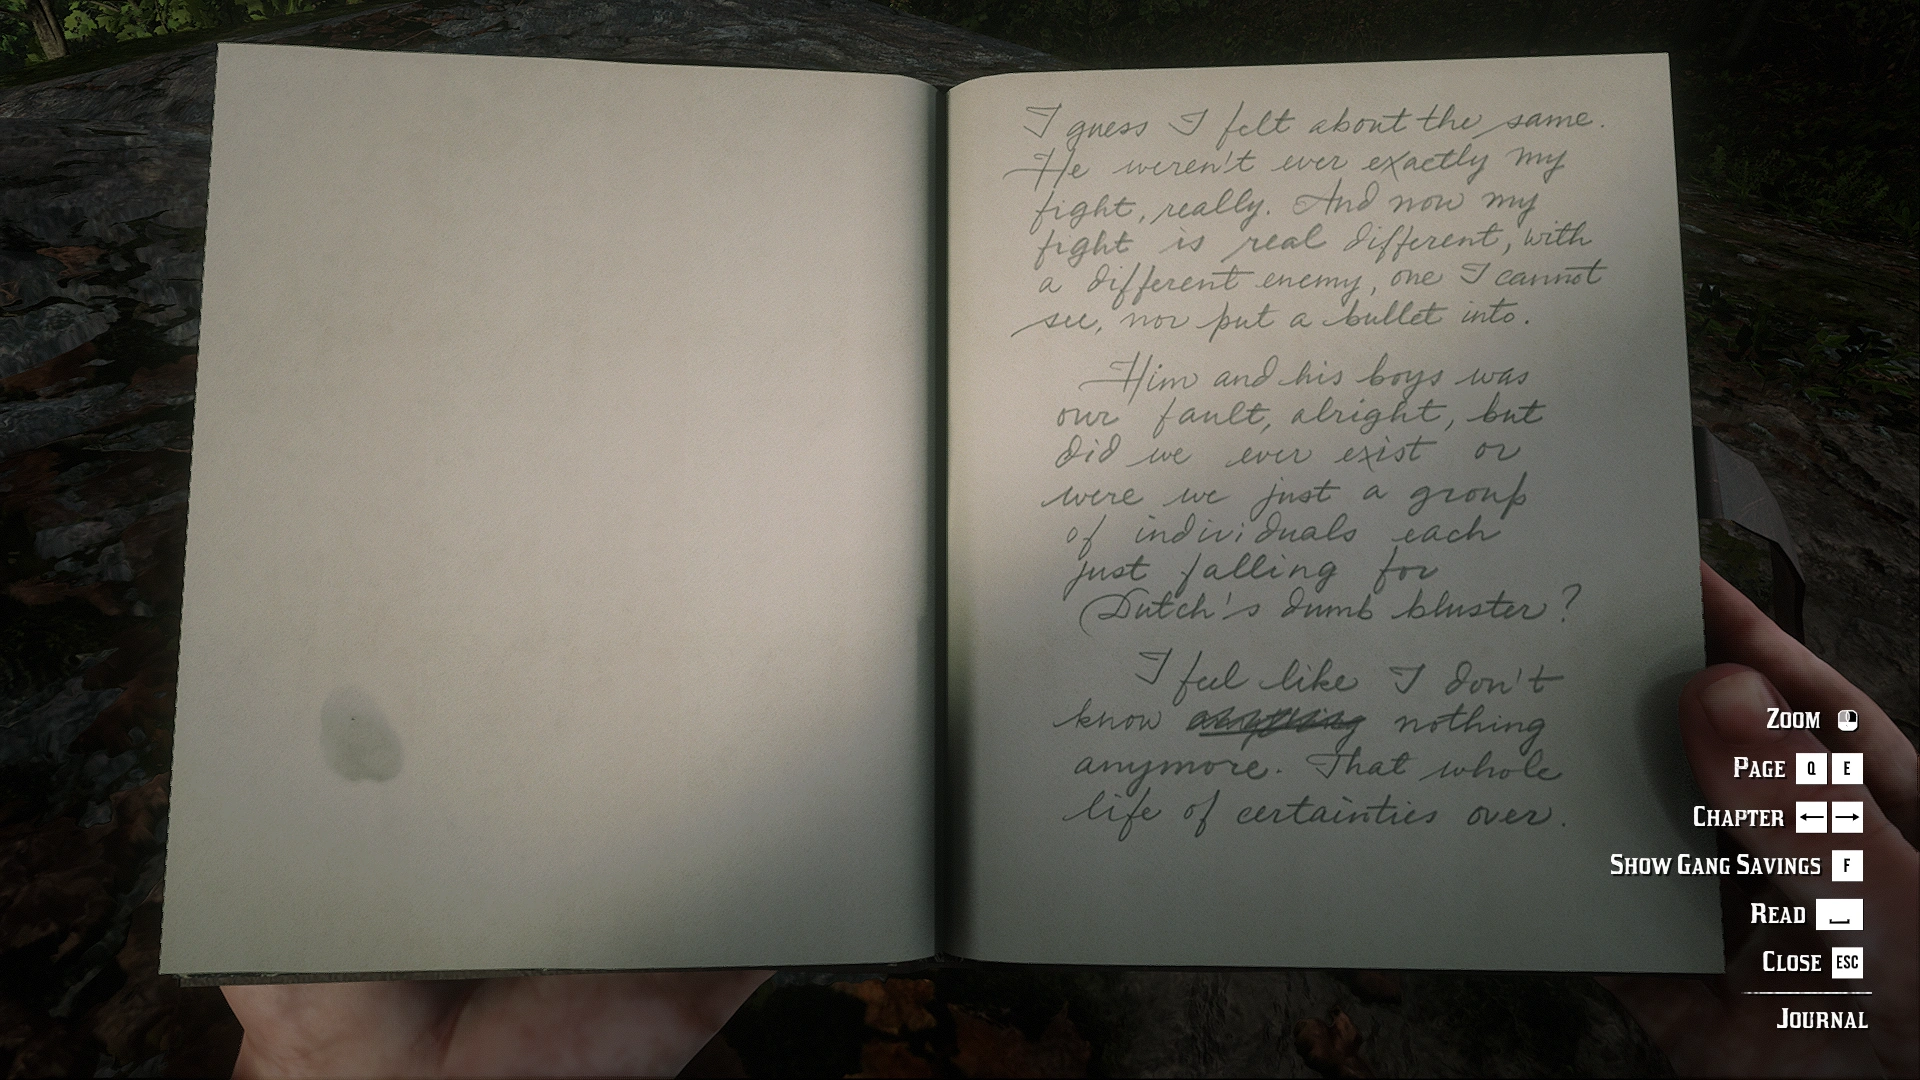 I guess I felt about the same.
He weren't ever exactly my
fight, really. And now my
fight is real different, with
a different enemy, one I cannot
see, nor put a bullet into.
Him and his boys was
our fault, alright, but
did we ever exist or
were we just a group
of individuals each
just falling for
Dutch's dumb bluster?
I feel like I don't
know anything nothing
anymore. That whole
life of certainties over.
ZOOM
PAGE Q E
CHAPTER ← →
SHOW GANG SAVINGS F
READ
CLOSE ESC
JOURNAL